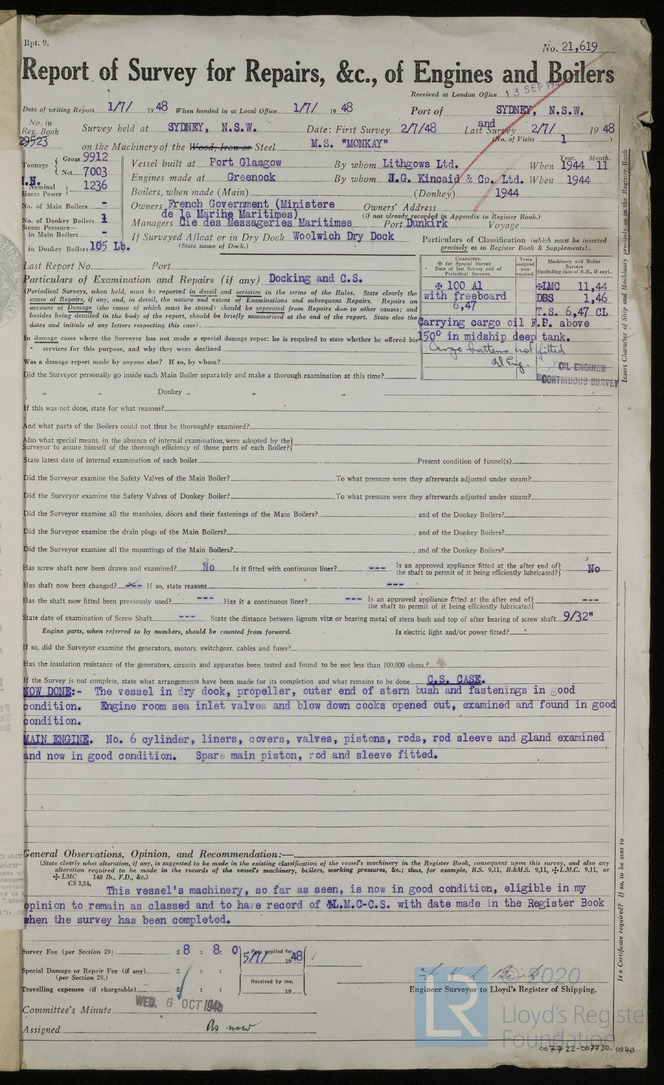 Rpt. 9.
No. 21,619
Report of Survey for Repairs, &c., of Engines and Boilers
Received at London Office 13 SEP
Date of writing Report 1/7/ 1948 When handed in at Local Office 1/7/ 1948 Port of SYDNEY, N.S.W.
No. in Reg. Book 29523 Survey held at SYDNEY, N.S.W. Date: First Survey 2/7/48 and Last Survey 2/7/ 1948
(No. of Visits 1)
on the Machinery of the Wood, Iron or Steel M.S. "MONKAY"
Tonnage Gross 9912 Net 7003
Vessel built at Port Glasgow By whom Lithgows Ltd. When Year. 1944 Month. 11
Nominal Horse Power 1236
Engines made at Greenock By whom H.G. Kincaid & Co. Ltd. When 1944
Boilers, when made (Main) (Donkey) 1944
No. of Main Boilers -
Owners French Government (Ministere de la Marine Maritimes) Owners' Address
(if not already recorded in Appendix to Register Book.)
No. of Donkey Boilers 1
Managers Cie des Messageries Maritimes Port Dunkirk Voyage
Steam Pressure in Main Boilers -
in Donkey Boilers 105 Lb.
If Surveyed Afloat or in Dry Dock Woolwich Dry Dock
(State name of Dock.)
Particulars of Classification (which must be inserted precisely as in Register Book & Supplements).
Last Report No. Port
Particulars of Examination and Repairs (if any) Docking and C.S.
Periodical Surveys, when held, must be reported in detail and seriatim in the terms of the Rules. State clearly the
cause of Repairs, if any, and, in detail, the nature and extent of Examinations and subsequent Repairs. Repairs on
account of Damage (the cause of which must be stated) should be separated from Repairs due to other causes; and
besides being detailed in the body of the report, should be briefly summarised at the end of the report. State also the
dates and initials of any letters respecting this case)
✠ 100 A1
with freeboard
6,47
✠LMC 11,44
DBS 1,46
T.S. 6,47 CL
Carrying cargo oil F.P. above
150° in midship deep tank.
Cargo battens not fitted
Oil Eng.
OIL ENGINES
CONTINUOUS SURVEY
In damage cases where the Surveyor has not made a special damage report he is required to state whether he offered his
services for this purpose, and why they were declined
Was a damage report made by anyone else? If so, by whom?
Did the Surveyor personally go inside each Main Boiler separately and make a thorough examination at this time?
" " Donkey " " "
If this was not done, state for what reasons?
And what parts of the Boilers could not be thoroughly examined?
Also what special means, in the absence of internal examination, were adopted by the
Surveyor to assure himself of the thorough efficiency of those parts of each Boiler?
State latest date of internal examination of each boiler Present condition of funnel(s)
Did the Surveyor examine the Safety Valves of the Main Boiler? To what pressure were they afterwards adjusted under steam?
Did the Surveyor examine the Safety Valves of Donkey Boiler? To what pressure were they afterwards adjusted under steam?
Did the Surveyor examine all the manholes, doors and their fastenings of the Main Boilers? , and of the Donkey Boilers?
Did the Surveyor examine the drain plugs of the Main Boilers? , and of the Donkey Boilers?
Did the Surveyor examine all the mountings of the Main Boilers? , and of the Donkey Boilers?
Has screw shaft now been drawn and examined? No Is it fitted with continuous liner? --- Is an approved appliance fitted at the after end of the shaft to permit of it being efficiently lubricated? No
Has shaft now been changed? --- If so, state reasons ---
Has the shaft now fitted been previously used? --- Has it a continuous liner? --- Is an approved appliance fitted at the after end of the shaft to permit of it being efficiently lubricated? ---
State date of examination of Screw Shaft --- State the distance between lignum vitæ or bearing metal of stern bush and top of after bearing of screw shaft 9/32"
Engine parts, when referred to by numbers, should be counted from forward. Is electric light and/or power fitted?
If so, did the Surveyor examine the generators, motors, switchgear, cables and fuses?
Has the insulation resistance of the generators, circuits and apparatus been tested and found to be not less than 100,000 ohms?
If the Survey is not complete, state what arrangements have been made for its completion and what remains to be done C.S. CASE.
NOW DONE:- The vessel in dry dock, propeller, outer end of stern bush and fastenings in good
condition. Engine room sea inlet valves and blow down cocks opened out, examined and found in good
condition.
MAIN ENGINE. No. 6 cylinder, liners, covers, valves, pistons, rods, rod sleeve and gland examined
and now in good condition. Spare main piston, rod and sleeve fitted.
General Observations, Opinion, and Recommendation:-
(State clearly what alteration, if any, is suggested to be made in the existing classification of the vessel's machinery in the Register Book, consequent upon this survey, and also any
alteration required to be made in the records of the vessel's machinery, boilers, working pressures, &c.; thus, for example, B.S. 9,11, B.&M.S. 9,11, ✠L.M.C. 9,11, or
✠ LMC 140 lb., F.D., &c.)
CS 3,34,
This vessel's machinery, so far as seen, is now in good condition, eligible in my
opinion to remain as classed and to have record of ✠L.M.C-C.S. with date made in the Register Book
when the survey has been completed.
Survey Fee (per Section 29) £ 8 : 8 : 0 Fee applied for 5/7/ 1948
Special Damage or Repair Fee (if any) (per Section 29.) £ : :
Received by me, 19
Travelling expenses (if chargeable) £ : :
Engineer Surveyor to Lloyd's Register of Shipping.
Committee's Minute WED. 6 OCT 1948
Assigned As now
Insert Character of Ship and Machinery precisely as in the Register Book
Is a Certificate required? If so, to be sent to
LR
Lloyd's Register
Foundation
007722-007730-0040